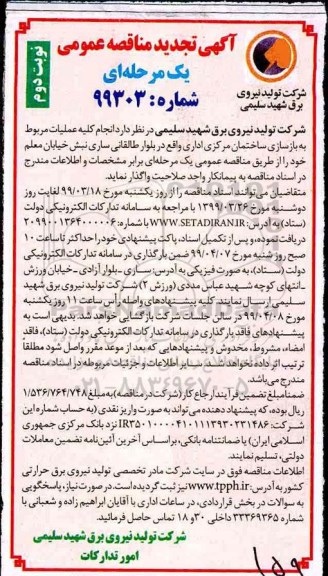 آگهی تجدید مناقصه عمومی
یک مرحله‌ای
شماره: ۹۹۳۰۳
نوبت دوم
شرکت تولید نیروی
برق شهید سلیمی
شرکت تولید نیروی برق شهید سلیمی در نظر دارد انجام کلیه عملیات مربوط
به بازسازی ساختمان مرکزی اداری واقع در بلوار طالقانی ساری نبش خیابان معلم
خود را از طریق مناقصه عمومی یک مرحله‌ای برابر مشخصات و اطلاعات مندرج
در اسناد مناقصه به پیمانکار واجد صلاحیت واگذار نماید.
متقاضیان می‌توانند اسناد مناقصه را از روز یکشنبه مورخ ۹۹/۰۳/۱۸ لغایت روز
دوشنبه مورخ ۱۳۹۹/۰۳/۲۶ با مراجعه به سامانه تدارکات الکترونیکی دولت
(ستاد) به آدرس: WWW.SETADIRAN.IR با شماره: ۲۰۹۹۰۰۱۳۶۴۰۰۰۰۰۶
دریافت نموده و پس از تکمیل اسناد، پاکت پیشنهادی خود را حداکثر تا ساعت ۱۰
صبح روز شنبه مورخ ۹۹/۰۴/۰۷ ضمن بارگذاری در سامانه تدارکات الکترونیکی
دولت (ستاد)، به صورت فیزیکی به آدرس: ساری ـ بلوار آزادی ـ خیابان ورزش
ـ انتهای کوچه شهید عباس مددی (ورزش ۲) شرکت تولید نیروی برق شهید
سلیمی ارسال نمایند. کلیه پیشنهادهای واصله رأس ساعت ۱۱ روز یکشنبه
مورخ ۹۹/۰۴/۰۸ در سالن جلسات شرکت بازگشایی خواهد شد. بدیهی است به
پیشنهادهای فاقد بارگذاری در سامانه تدارکات الکترونیکی دولت (ستاد)، فاقد
امضاء، مشروط، مخدوش و پیشنهادهایی که بعد از موعد مقرر واصل شود مطلقا
ترتیب اثر داده نخواهد شد. سایر اطلاعات و جزئیات مربوطه در اسناد مناقصه
مندرج می‌باشد.
ضمنا مبلغ تضمین فرآیند ارجاع کار (شرکت در مناقصه) به مبلغ ۱/۵۳۶/۷۶۴/۷۴۸
ریال بوده، که پیشنهاد دهنده می‌تواند به صورت واریز نقدی (به حساب شماره این
شرکت: IR۳۵۰۱۰۰۰۰۴۱۰۱۱۱۳۹۳۰۲۳۱۴۸۶ نزد بانک مرکزی جمهوری
اسلامی ایران) یا ضمانتنامه بانکی، بر اساس آخرین آئین‌نامه تضمین معاملات
دولتی، تسلیم نمایند.
اطلاعات مناقصه فوق در سایت شرکت مادر تخصصی تولید نیروی برق حرارتی
کشور به آدرس: www.tpph.ir نیز ثبت گردیده است. در صورت نیاز، پاسخگویی
به سوالات در بخش قراردادی، در ساعات اداری با آقایان ابراهیم زاده و شعبانی با
شماره ۳۳۳۶۹۲۶۵ داخلی ۳۰ و ۱۸ تماس حاصل فرمائید.
شرکت تولید نیروی برق شهید سلیمی
امور تدارکات